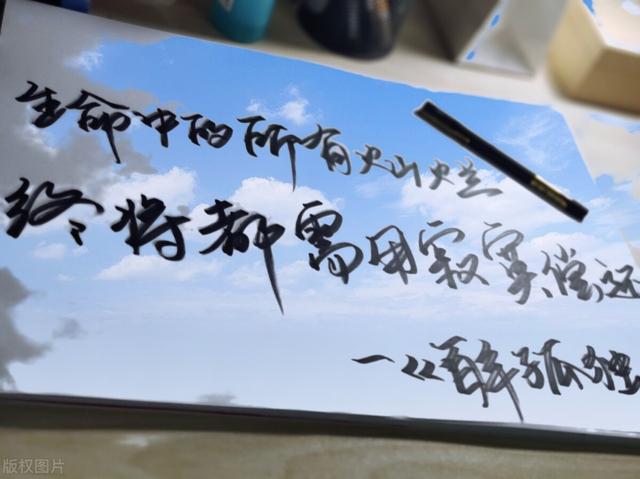 生命中的所有灿烂
终将都需用寂寞偿还
—《百年孤独
版权图片